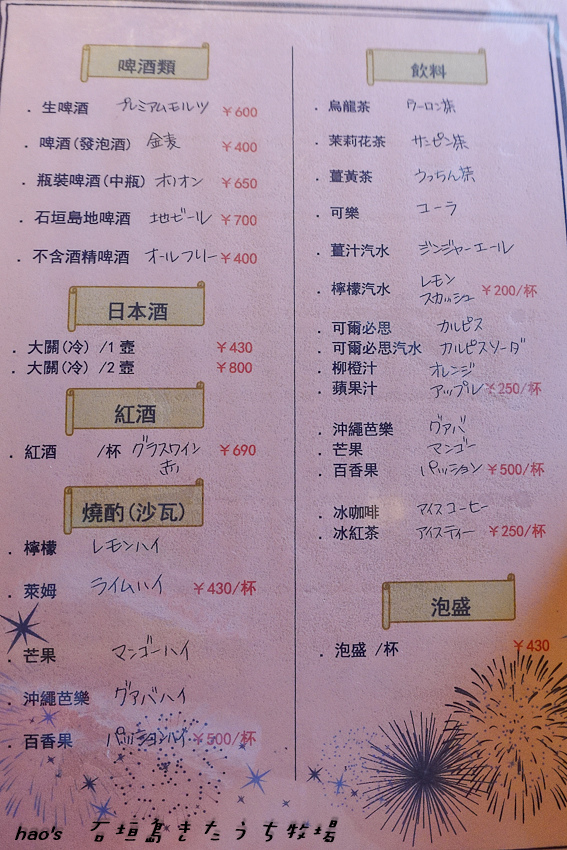 啤酒類
. 生啤酒 プレミアムモルツ ￥600
. 啤酒(發泡酒) 金麦 ￥400
. 瓶裝啤酒(中瓶) オリオン ￥650
. 石垣島地啤酒 地ビール ￥700
. 不含酒精啤酒 オールフリー ￥400
日本酒
. 大關(冷) /1 壺 ￥430
. 大關(冷) /2 壺 ￥800
紅酒
. 紅酒 /杯 グラスワイン ￥690
赤
燒酌(沙瓦)
. 檸檬 レモンハイ
. 萊姆 ライムハイ ￥430/杯
. 芒果 マンゴーハイ
. 沖繩芭樂 グァバハイ
. 百香果 パッションハイ ￥500/杯
飲料
. 烏龍茶 ウーロン茶
. 茉莉花茶 サンピン茶
. 薑黃茶 うっちん茶
. 可樂 コーラ
. 薑汁汽水 ジンジャーエール
. 檸檬汽水 レモン
スカッシュ ￥200/杯
. 可爾必思 カルピス
. 可爾必思汽水 カルピスソーダ
. 柳橙汁 オレンジ
. 蘋果汁 アップル ￥250/杯
. 沖繩芭樂 グァバ
. 芒果 マンゴー
. 百香果 パッション ￥500/杯
. 冰咖啡 アイスコーヒー
. 冰紅茶 アイスティー ￥250/杯
泡盛
. 泡盛 /杯 ￥430
hao's 石垣島きたうち牧場